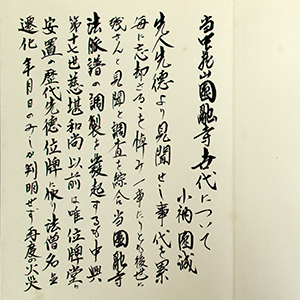 当山圓融寺歴代について
小衲 圓誠
先人先徳より見聞せし事代を累
毎に忘却さるゝを悼み一事にても後世に
残さんと見聞と調査を綜合当圓融寺
法脈譜の調製を發起するも中興
第十七世慈堪和尚以前は唯位牌堂に
安置の歴代先徳位牌に依り法僧名と
遷化年月日のみしか判明せず再度の火災